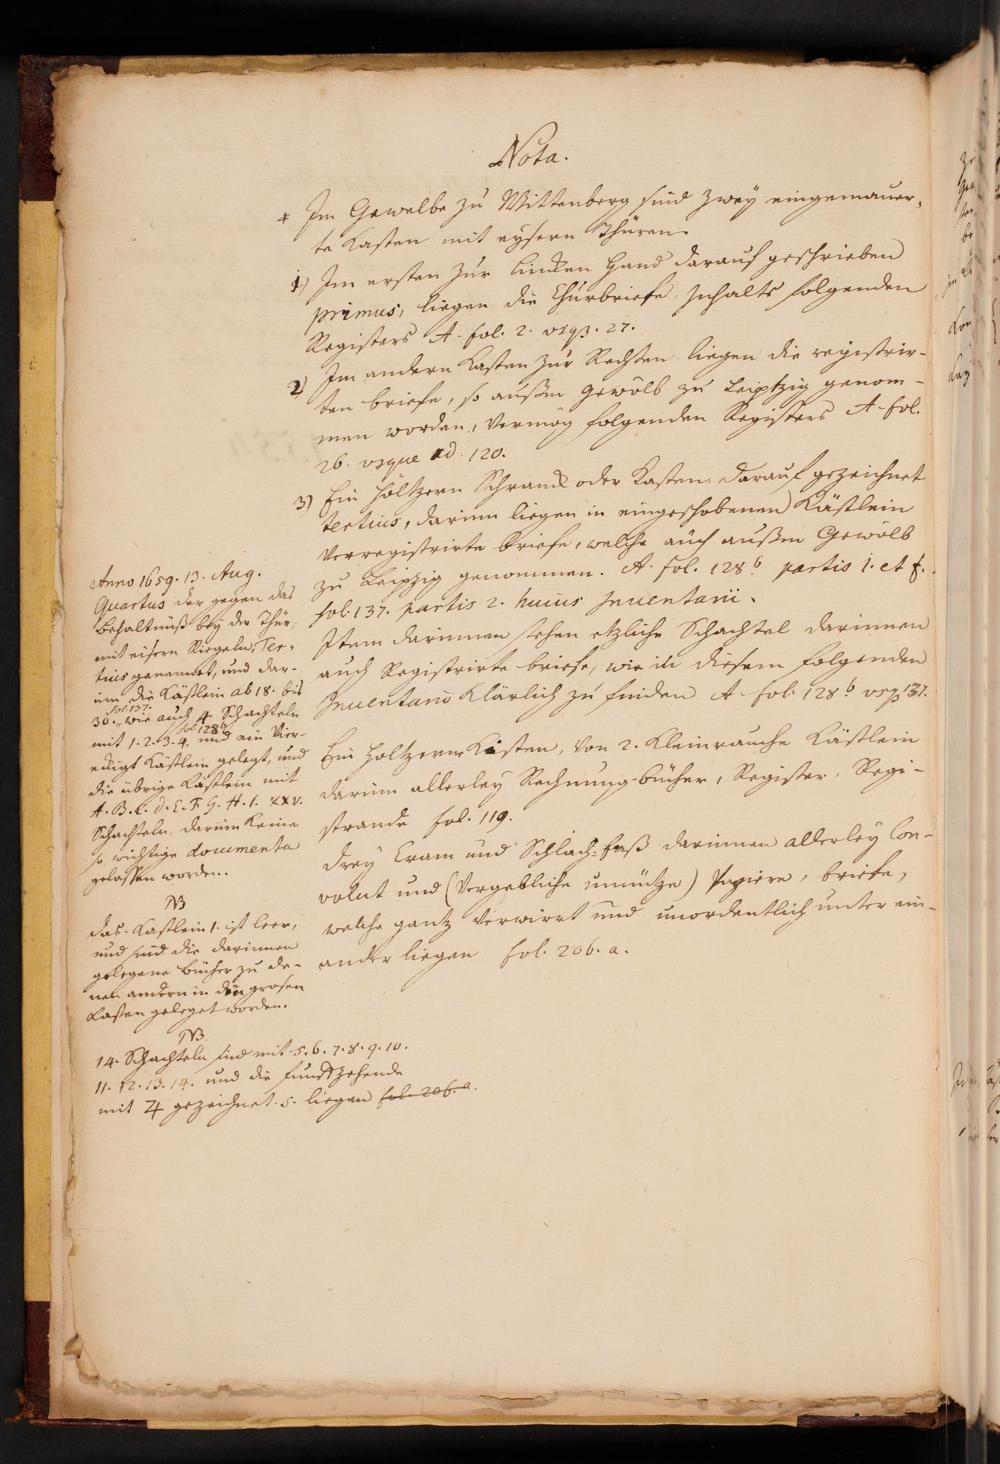 Nota.
* Im Gewelbe zu Wittenberg sind zwey eingemauer-
te Kasten mit eysern Thüren
1) Im ersten zur lincken Hand darauf geschrieben
primus, liegen die Churbriefe Inhalts folgenden
Registers A. fol. 2. vsqз. 27.
2) Im andern Kasten zur Rechten liegen die registrir-
ten briefe, so außm Gewölb zu Leiptzig genom-
men worden, vermög folgenden Registers A. fol.
26. vsque ad. 120.
3) Ein höltzern Schranck oder Kasten darauf gezeichnet
tertius, darinn liegen in eingeschobenen Kästlein
verregistrirte briefe, welche auch außm Gewölb
zu Leipzig genommen. A. fol. 128 b. partis 1. et f.
fol. 137. partis 2. huius Inuentarii.
Item darinnen stehen etzliche Schachtel darinnen
auch Registrirte briefe, wie in diesem folgenden
Inuentario klärlich zu finden A. fol. 128 b vsqз 131.
Ein holtzern Kasten, von 2. Kleinrauche Kästlein
darinn allerley Rechnung-bücher, Register, Regi-
strande fol. 119.
Drey Cram und Schlach-faß darinnen allerley Con-
volut und (vergebliche unnütze) Papiere, briefe,
welche gantz verwirrt und unordentlich unter ein-
ander liegen fol. 206. a.
Anno 1659. 13. Aug.
Quartus der gegen das
Behältnuß bey der Thür,
mit eisern Riegeln, Ter-
tius genannet, und dar-
inn die Kästlein ab 18. bis
fol. 137.
30. wie auch 4 Schachteln
fol. 128 b
mit 1. 2. 3. 4. und ein Vier-
eckigt Kästlein gelegt, und
die übrige Kästlein mit
A. B. C. D. E. F. G. H. I. XXV.
Schachteln, darinn keine
so wichtige documenta
gelassen worden.
NB
das Kästlein 1. ist leer,
und sind die darinnen
gelegene bücher zu de-
nen andern in den grosen
Kasten geleget worden.
NB.
14. Schachteln sind mit 5. 6. 7. 8. 9. 10.
11. 12. 13. 14. und die funffzehende
mit ♃ gezeichnet. 5. liegen fol. 206. a.